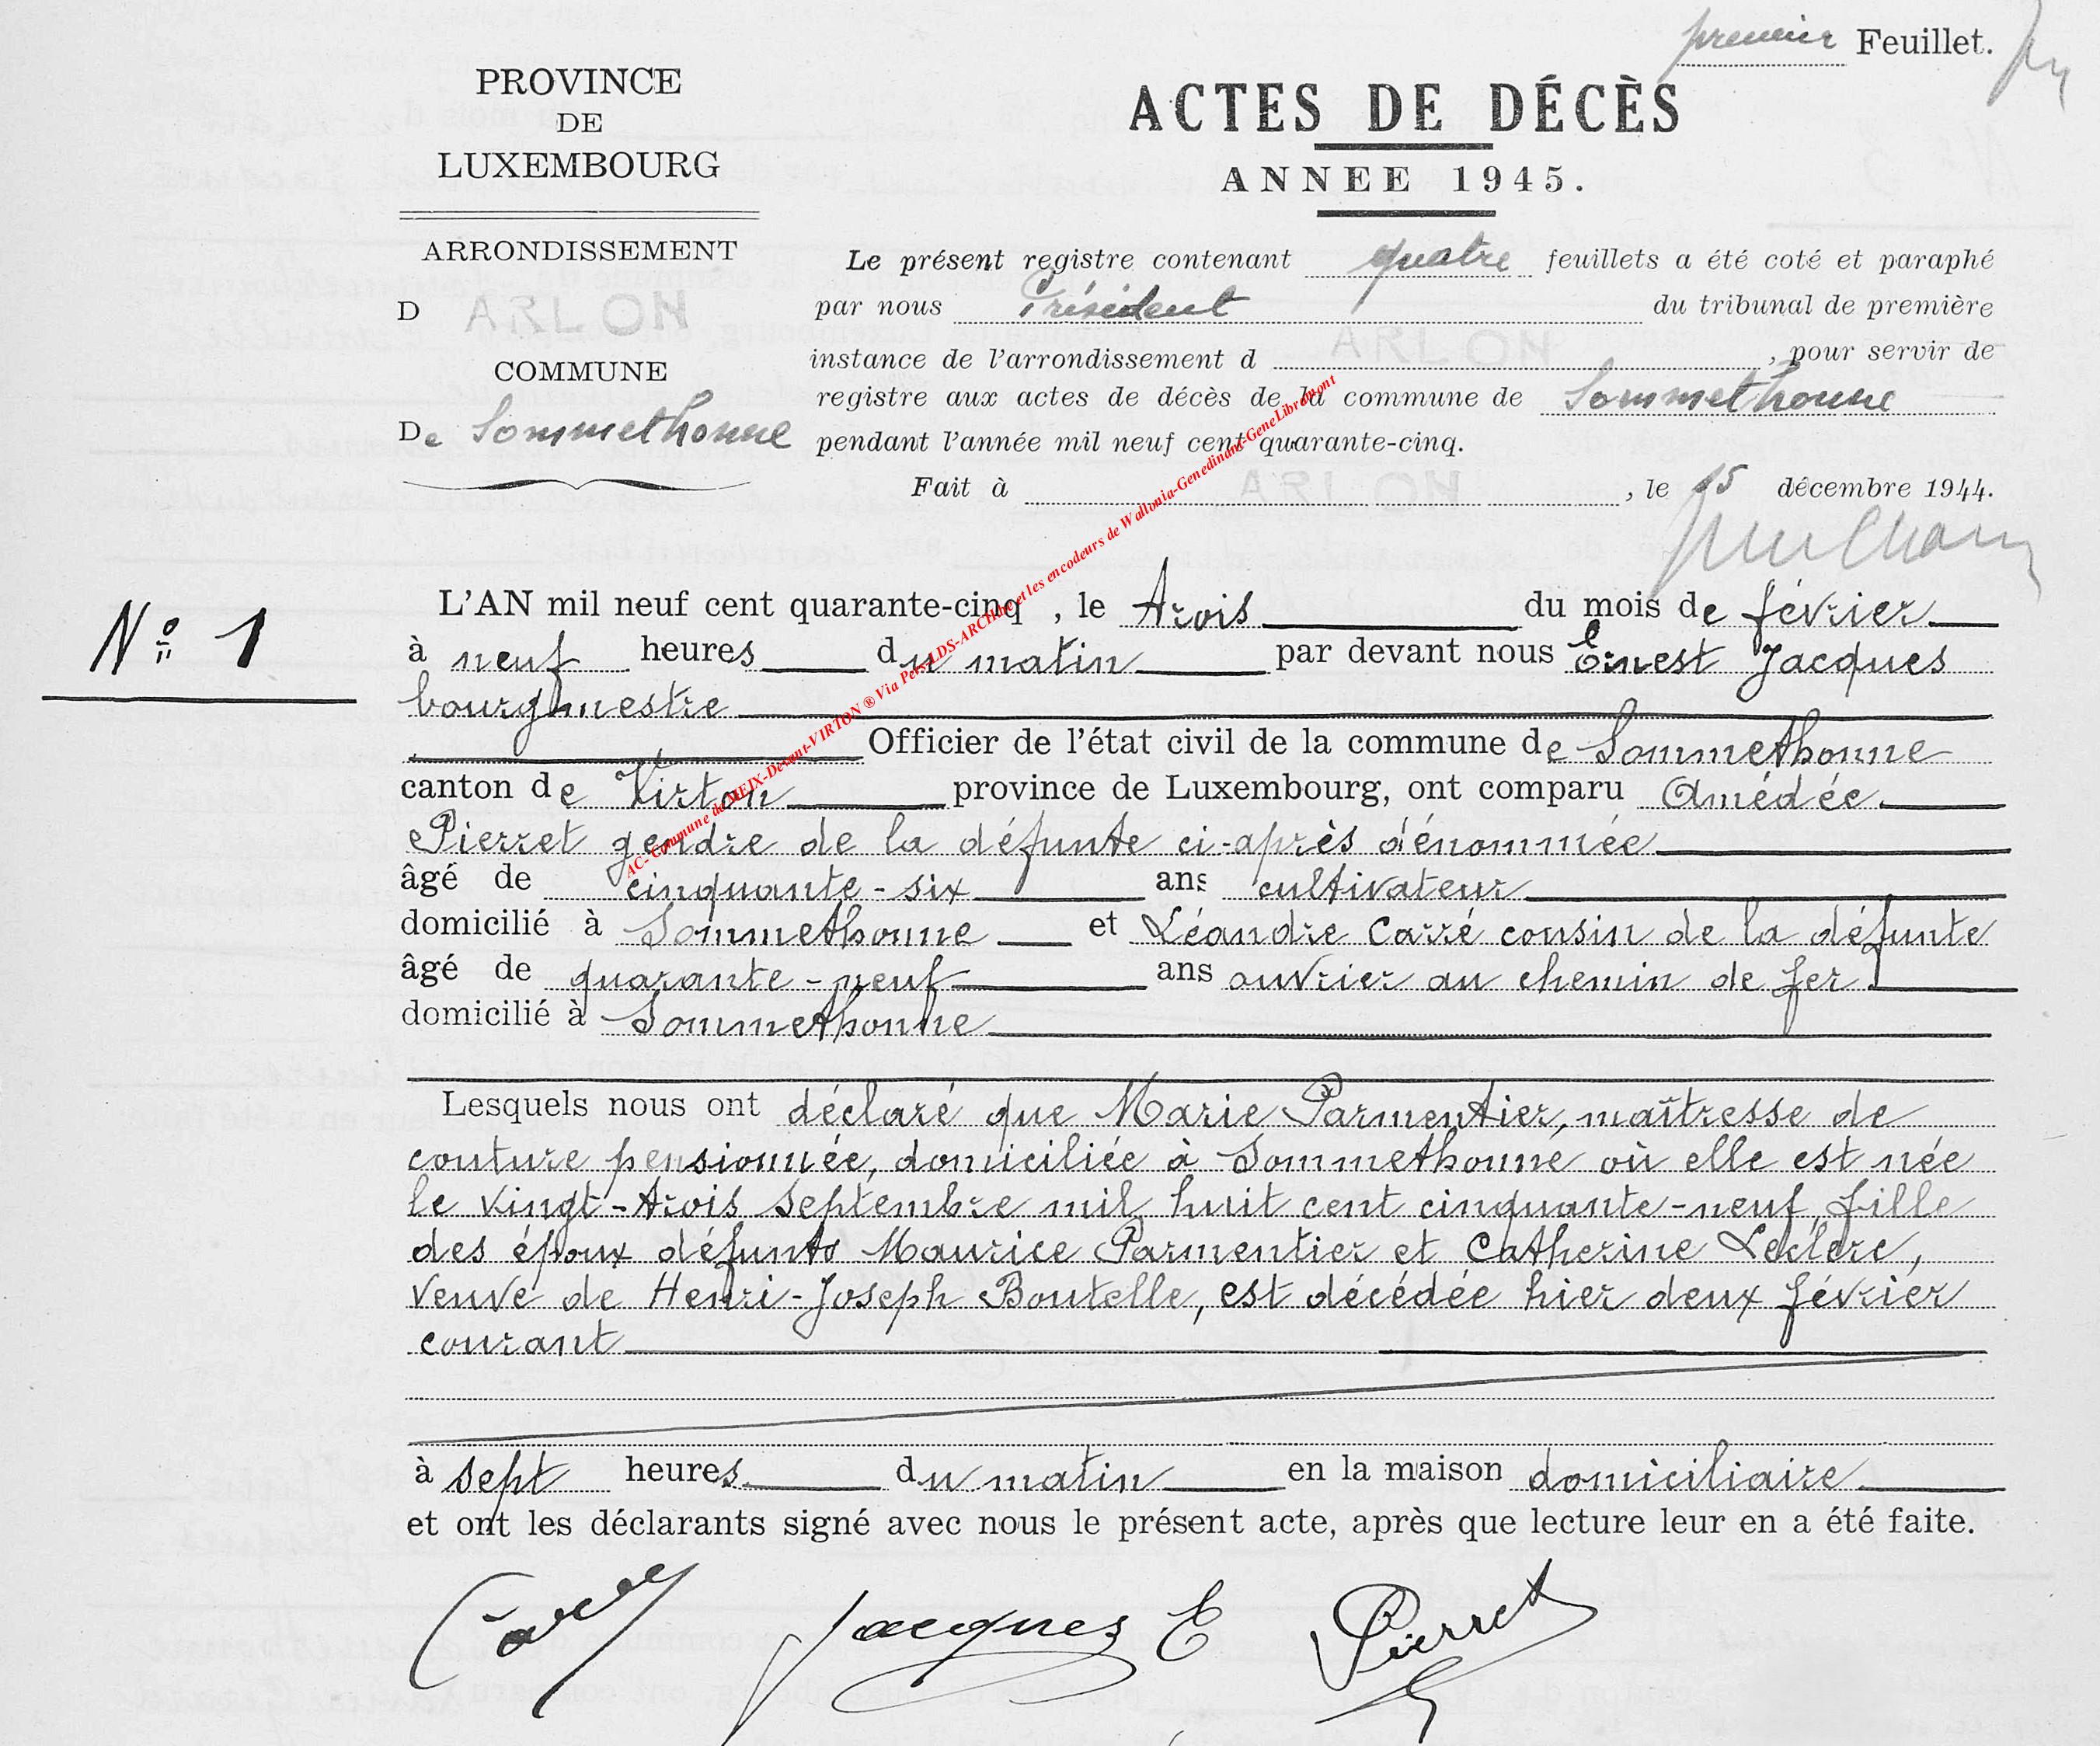 premier Feuillet.
PROVINCE
DE
LUXEMBOURG
ARRONDISSEMENT
D ARLON
COMMUNE
De Sommethonne
ACTES DE DÉCÈS
ANNEE 1945.
Le présent registre contenant quatre feuillets a été coté et paraphé
par nous Président du tribunal de première
instance de l'arrondissement d ARLON , pour servir de
registre aux actes de décès de la commune de Sommethonne
pendant l'année mil neuf cent quarante-cinq.
Fait à ARLON , le 15 décembre 1944.
N° 1
L'AN mil neuf cent quarante-cinq , le trois du mois de février
à neuf heures du matin par devant nous Ernest Jacques
bourgmestre
Officier de l'état civil de la commune de Sommethonne
canton de Virton province de Luxembourg, ont comparu Amédée
Pierret gendre de la défunte ci-après dénommée
âgé de cinquante-six ans cultivateur
domicilié à Sommethonne et Léandre Carré cousin de la défunte
âgé de quarante-neuf ans ouvrier au chemin de fer
domicilié à Sommethonne
Lesquels nous ont déclaré que Marie Parmentier, maîtresse de
couture pensionnée, domiciliée à Sommethonne où elle est née
le vingt-trois septembre mil huit cent cinquante-neuf, fille
des époux défunts Maurice Parmentier et Catherine Leclerc,
veuve de Henri-Joseph Boutelle, est décédée hier deux février
courant
à sept heures du matin en la maison domiciliaire
et ont les déclarants signé avec nous le présent acte, après que lecture leur en a été faite.
Carré Jacques E Pierret
AC- Commune de MEIX-Devant-VIRTON ® Via Pers-LDS-ARCHbe et les encodeurs de Wallonia-Genedinant-GeneLibramont